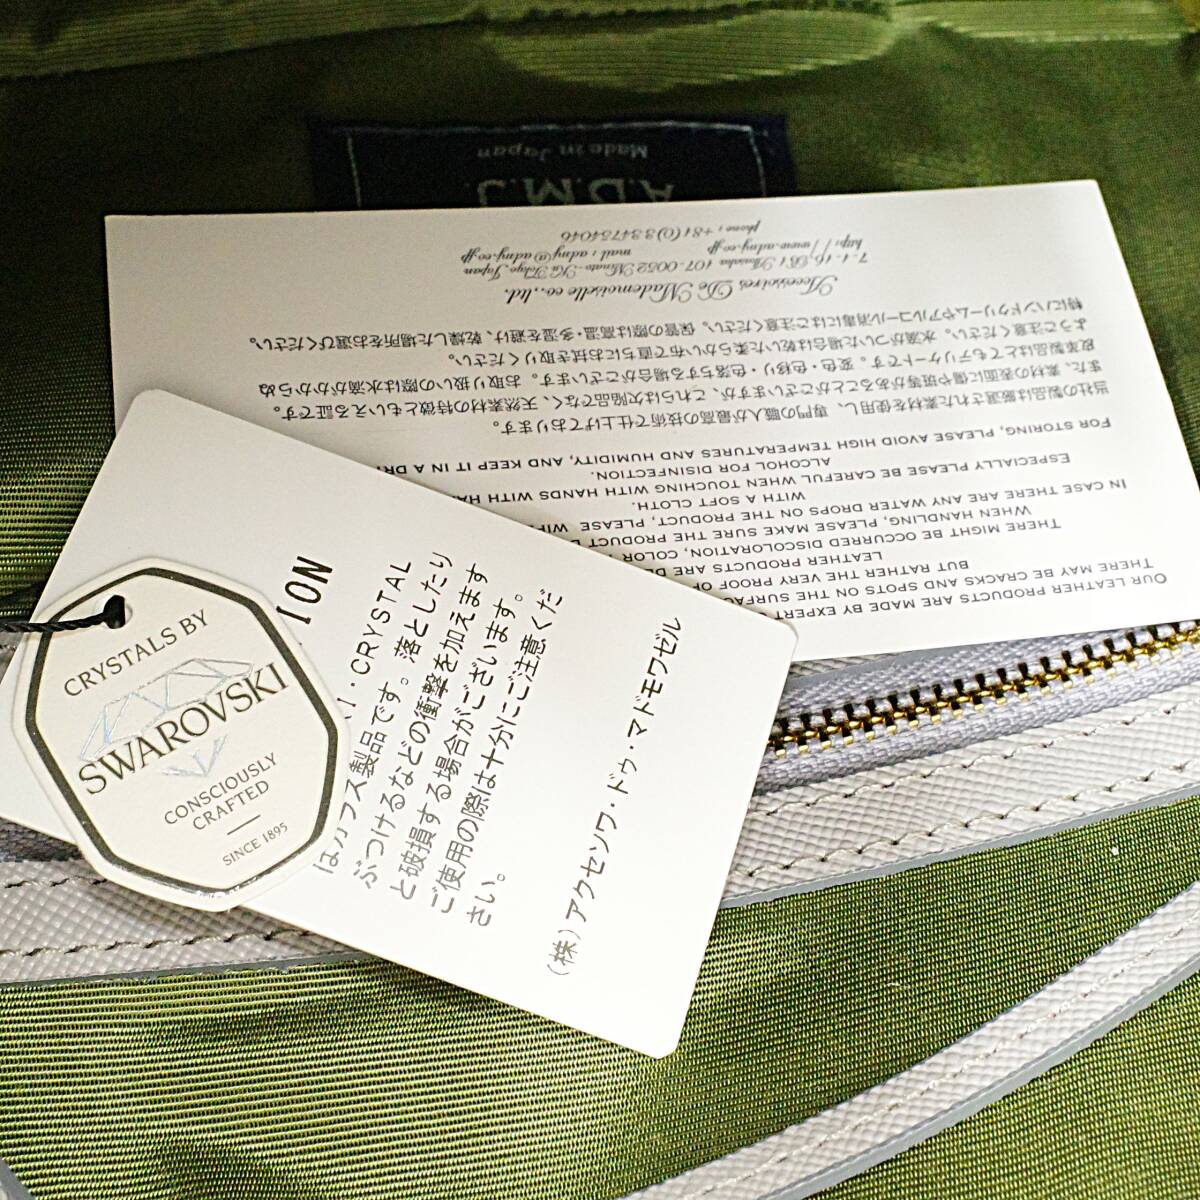 A.D.M.J.
Made in Japan
OUR LEATHER PRODUCTS ARE MADE BY EXPERT
THERE MAY BE CRACKS AND SPOTS ON THE SURFAC
BUT RATHER THE VERY PROOF OF
LEATHER PRODUCTS ARE DE
THERE MIGHT BE OCCURRED DISCOLORATION, COLOR
WHEN HANDLING, PLEASE MAKE SURE THE PRODUCT
IN CASE THERE ARE ANY WATER DROPS ON THE PRODUCT, PLEASE WIPE
WITH A SOFT CLOTH.
ESPECIALLY PLEASE BE CAREFUL WHEN TOUCHING WITH HANDS WITH HAN
ALCOHOL FOR DISINFECTION.
FOR STORING, PLEASE AVOID HIGH TEMPERATURES AND HUMIDITY, AND KEEP IT IN A DR
当社の製品は厳選された素材を使用し、専門の職人が最高の技術で仕上げております。
また、素材の表面に傷や斑等があることがございますが、これらは欠陥でなく、天然素材の特徴ともいえる証です。
皮革製品はとてもデリケートです。変色・色移り・色落ちする場合がございます。お取り扱いの際は水滴がかからぬ
ようご注意ください。水滴がついた場合は乾いた柔らかい布で直ちにお拭き取りください。
特にハンドクリームやアルコール消毒にはご注意ください。保管の際は高温・多湿を避け、乾燥した場所をお選びください。
Accessoires De Mademoiselle co.,ltd.
7-1-16, B1 Akasaka 107-0052 Minato-Ku Tokyo, Japan
http://www.admj.co.jp mail : admj@admj.co.jp
phone : +81(0)334734046
ION
I・CRYSTAL
はガラス製品です。落としたり
ぶつけるなどの衝撃を加えます
と破損する場合がございます。
ご使用の際は十分にご注意くだ
さい。
(株)アクセソワ・ドゥ・マドモワゼル
CRYSTALS BY
SWAROVSKI
CONSCIOUSLY
CRAFTED
SINCE 1895